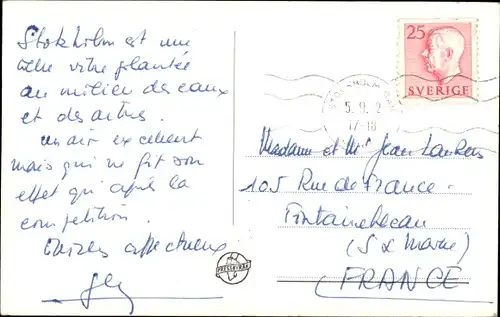 Stokholm est une
ville vitre plantée
au milieu des eaux
et des arbres.
un air excellent
mais qui ne fit son
effet qu'après la
compétition.
affectueux
25
SVERIGE
STOCKHOLM
5.9.
17-18
Madame et Mr Jean
105 Rue de France
Fontainebleau
(S & Marne)
FRANCE